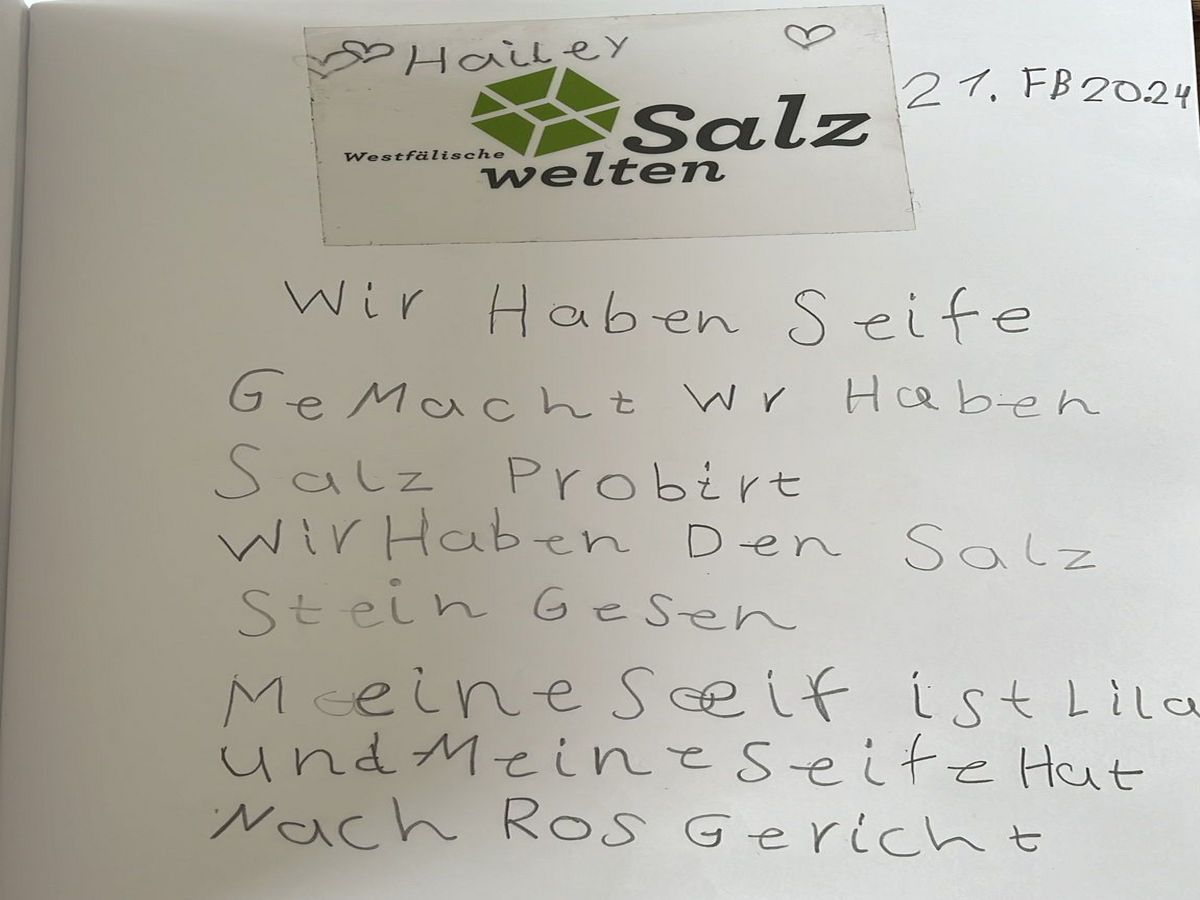 Hailey
21. FB2024
Westfälische Salz
welten
Wir Haben Seife
GeMacht Wr Haben
Salz Probirt
Wir Haben Den Salz
Stein Gesen
Meine Seeif ist Lila
und Meine Seife Hat
Nach Ros Gericht